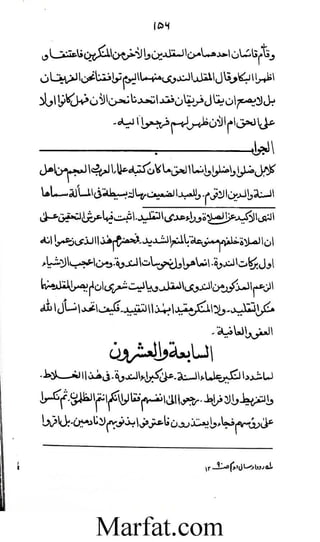 ۱۵۶
وقام قاسمان احدهما من المقلدين والآخر من المنكرين فاعتنقا و
اظهرا البكاء وقال المقلد الندوي منهما اليوم توافقنا نحن الفريقان
بل لا يصح ان يقال فريقان فقد اتحدنا نحن الأن فهل كانوا اولا
على الحق ام الأن ظهر لهم فرجعوا اليه۔
الجواب
كلا بل ضلوا واضلوا وانما الحق ما كان كتبه علماء العرب والعجم من اهل
السنة والدين الاقوم۔ وللعبد الضعيف رسالة بسيطة في المسألة سماها
النهى الاكيد عن الصلاة وراء عدى التقليد۔ اثبت فيها عرش التحقيق على
ان الصلاة خلفهم ممنوعة بالمنع الشديد۔ فهذا الذى زعموا انه
اول بركات الندوة۔ انما هو اول نحوسات الندوة۔ ومن اعجب الاشياء
الزعم المذكور من الندوى المقلد۔ وياليت شعرى ان لم يصر المقلد منهما
منكر التقليد۔ ولا المنكر مقيدا بهذا التقييد۔ فكيف اتحدا نسأل الله
العفو والعافية۔
السابعة والعشرون
لما شدد النكير علماء السنة۔ على كبراء الندوة۔ في هذا الخلاط۔
والتفريط والافراط۔ رجعوا الى انفسهم فقالوا انكم انتم الظلمون۔ ثم نكسوا
على رؤسهم فجاءوا يعتذرون فاعترفوا بذنوبهم لا نادمين۔ بل اقروا
Marfat.com